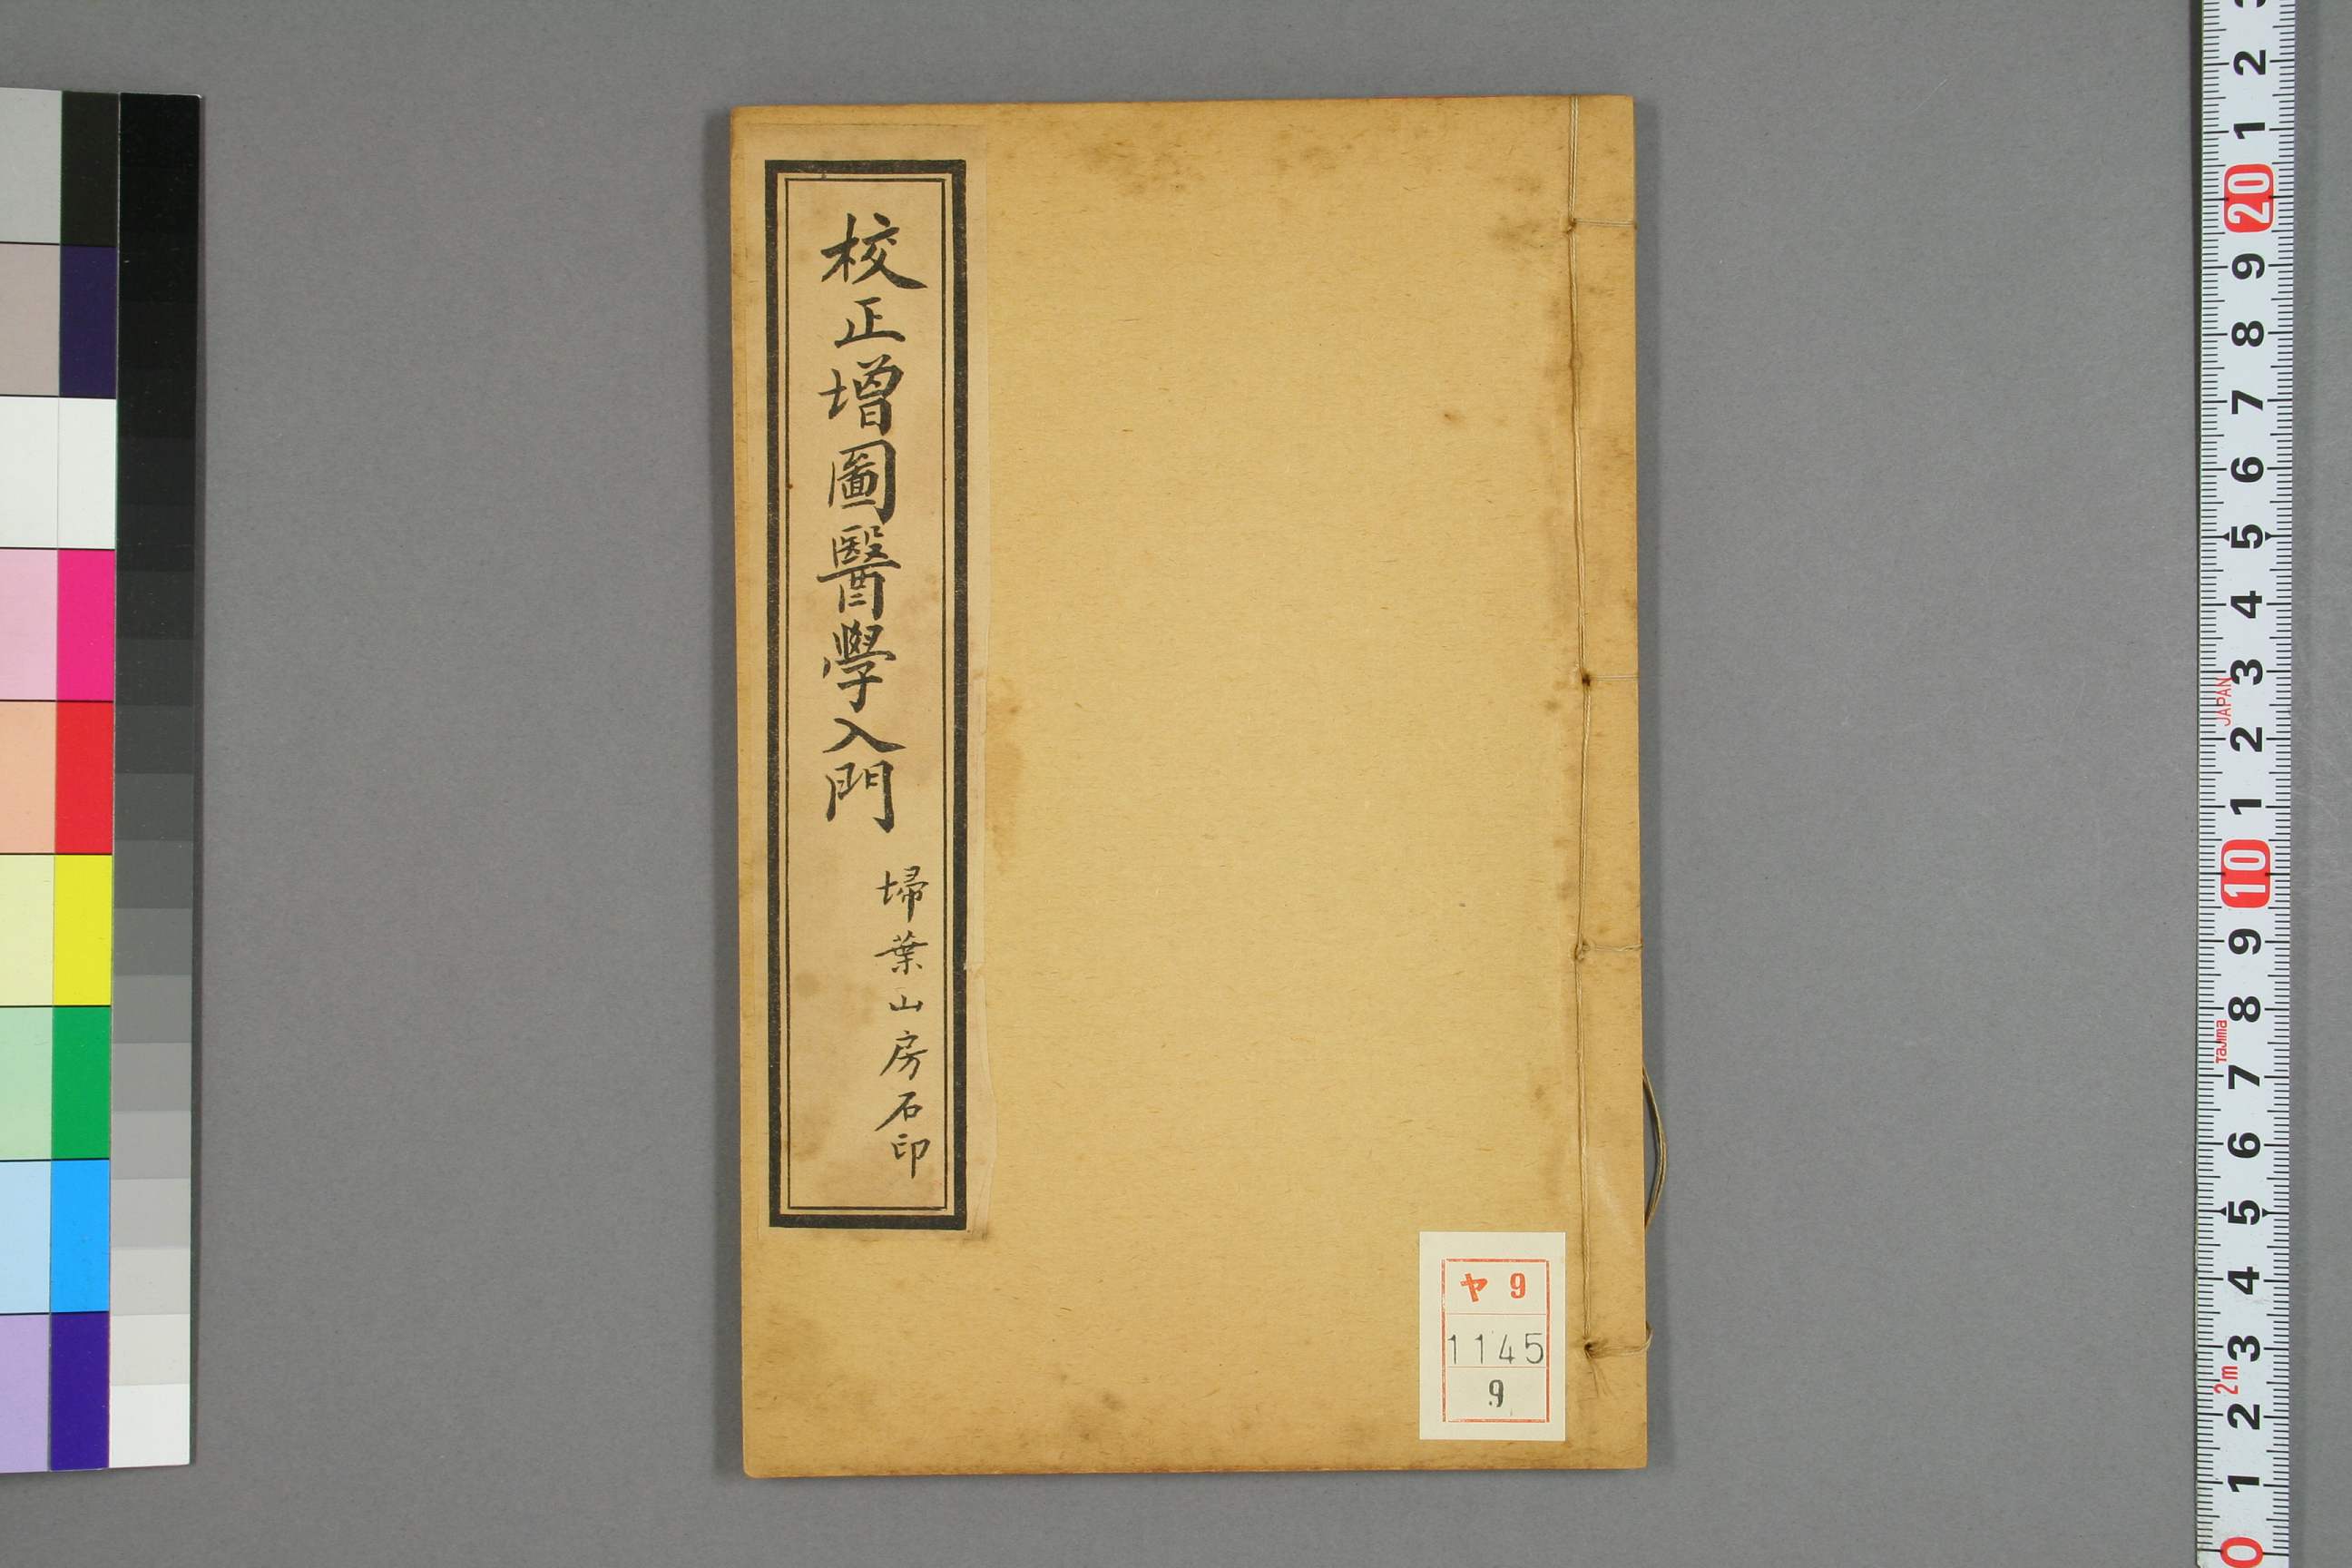 校正增圖醫學入門
埽葉山房石印
ヤ 9
1145
9
3 2 1 20 9 8 7 6 5 4 3 2 1 10 9 8 7 6 5 4 3 2 1 0
JAPAN
Tajima
2m